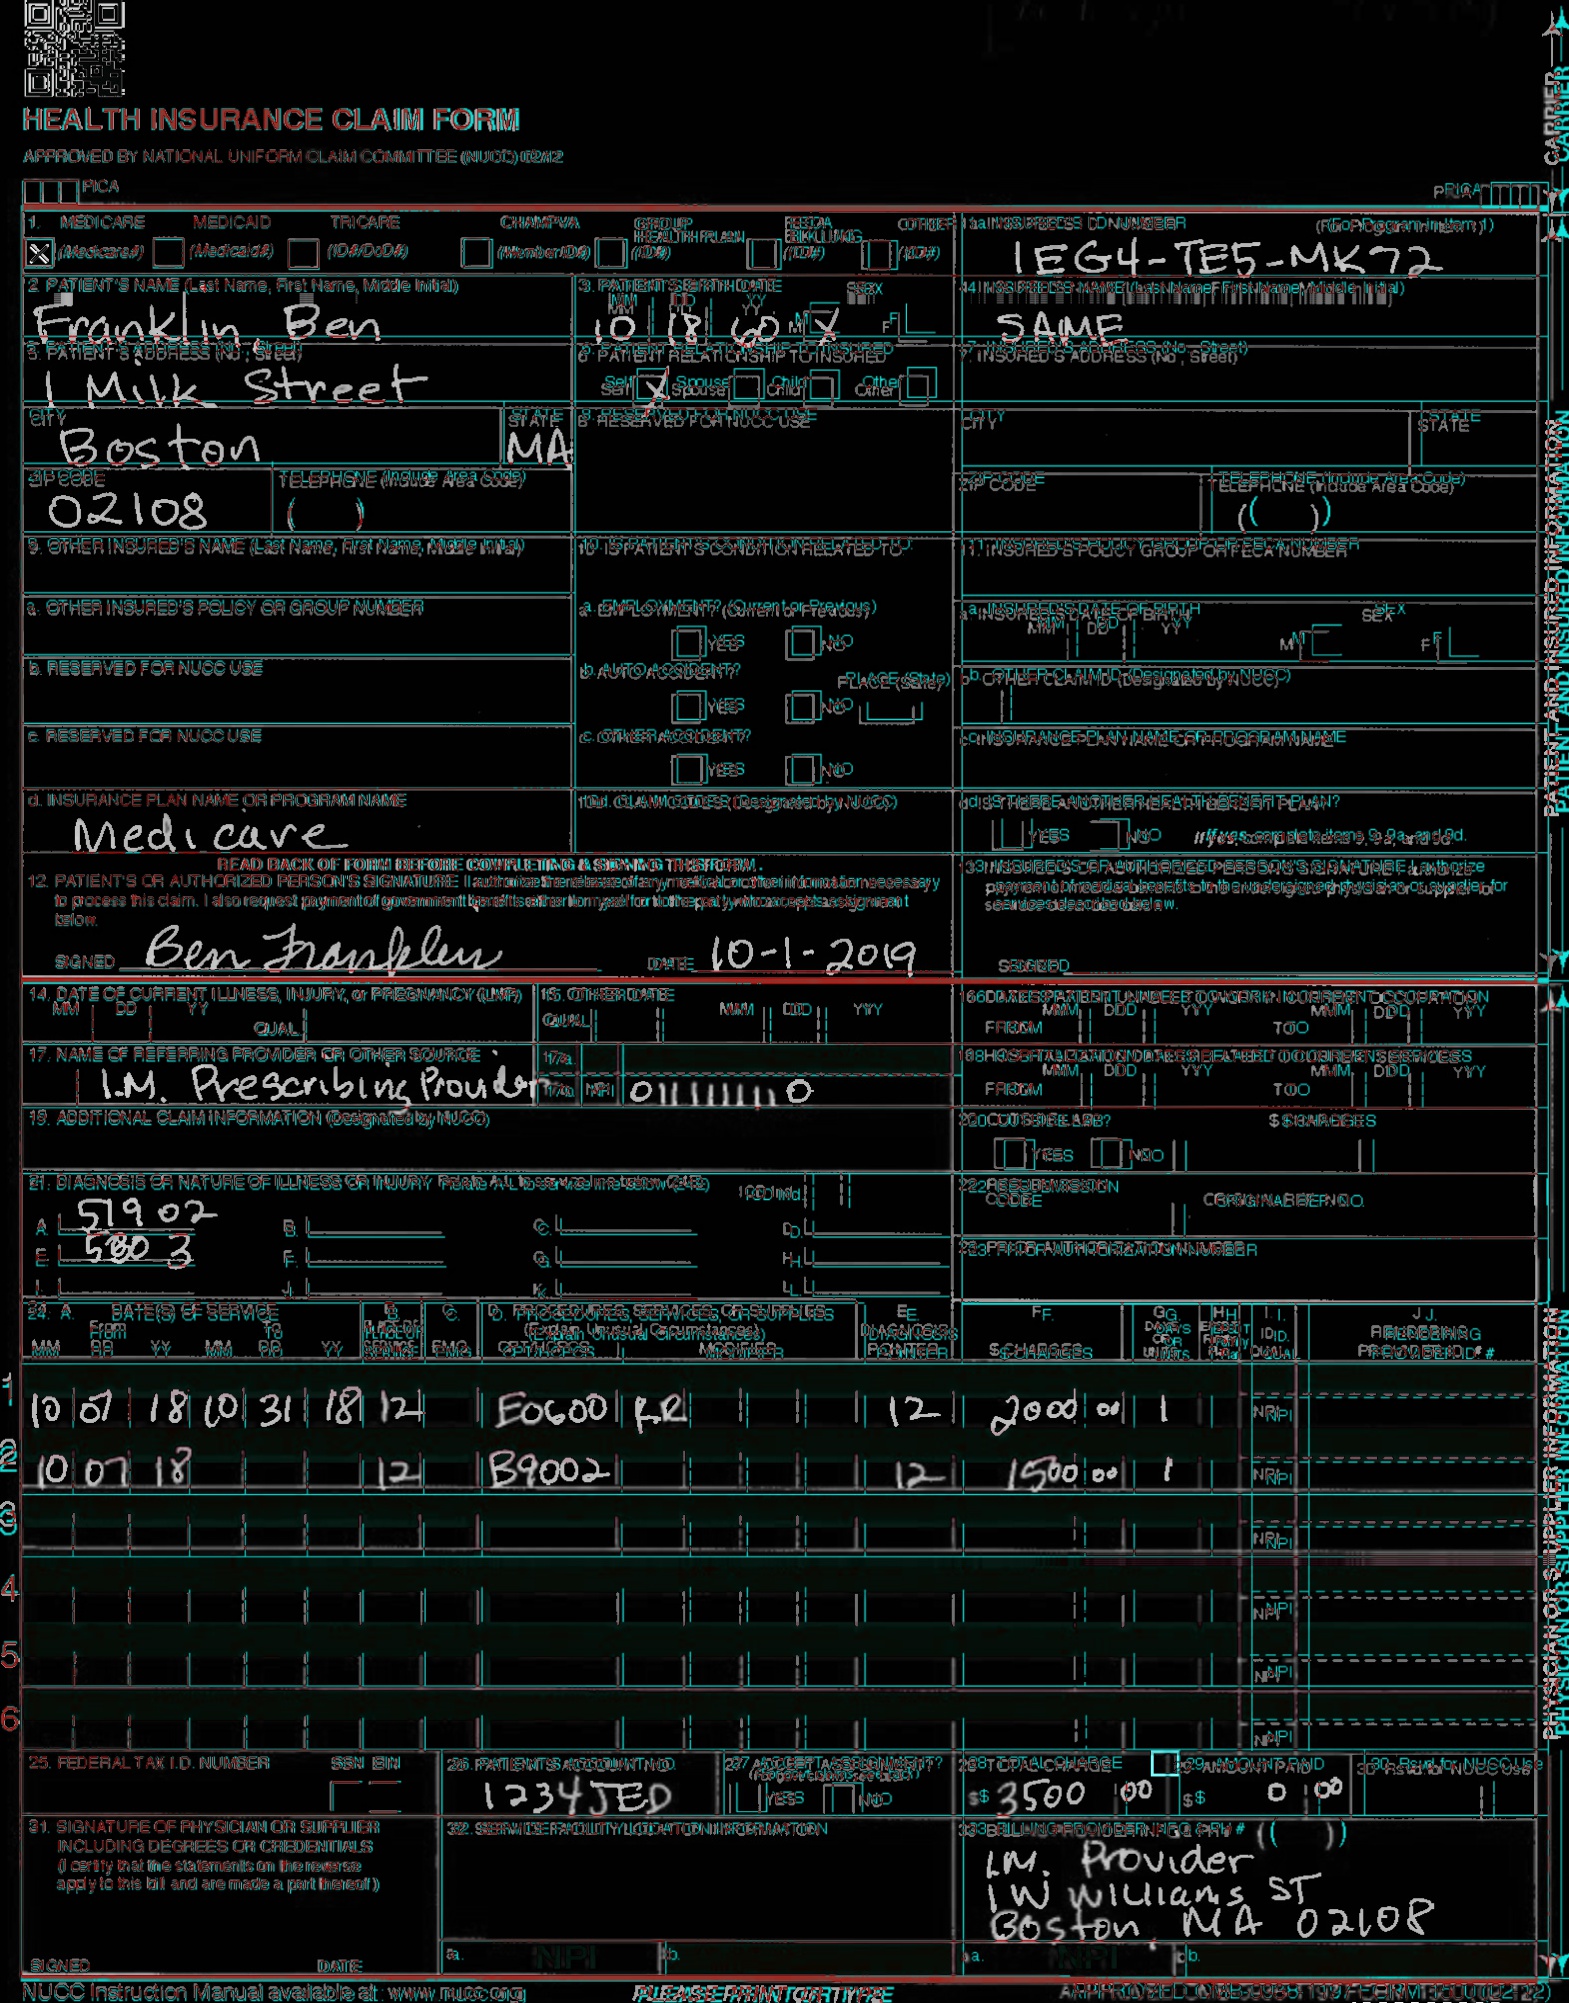 HEALTH INSURANCE CLAIM FORM
APPROVED BY NATIONAL UNIFORM CLAIM COMMITTEE (NUCC) 02/12
PICA
PICA
CARRIER
1. MEDICARE MEDICAID TRICARE CHAMPVA GROUP HEALTH PLAN FECA BLK LUNG OTHER
(Medicare#) (Medicaid#) (ID#/DoD#) (Member ID#) (ID#) (ID#) (ID#)
1a. INSURED'S I.D. NUMBER (For Program in Item 1)
1EG4-TE5-MK72
2. PATIENT'S NAME (Last Name, First Name, Middle Initial)
Franklin, Ben
3. PATIENT'S BIRTH DATE SEX
MM DD YY
10 18 60 M X F
4. INSURED'S NAME (Last Name, First Name, Middle Initial)
SAME
5. PATIENT'S ADDRESS (No., Street)
1 Milk Street
6. PATIENT RELATIONSHIP TO INSURED
Self X Spouse Child Other
7. INSURED'S ADDRESS (No., Street)
CITY STATE
Boston MA
8. RESERVED FOR NUCC USE
CITY STATE
ZIP CODE TELEPHONE (Include Area Code)
02108 ( )
ZIP CODE TELEPHONE (Include Area Code)
( )
9. OTHER INSURED'S NAME (Last Name, First Name, Middle Initial)
10. IS PATIENT'S CONDITION RELATED TO:
11. INSURED'S POLICY GROUP OR FECA NUMBER
a. OTHER INSURED'S POLICY OR GROUP NUMBER
a. EMPLOYMENT? (Current or Previous)
YES NO
a. INSURED'S DATE OF BIRTH SEX
MM DD YY M F
b. RESERVED FOR NUCC USE
b. AUTO ACCIDENT? PLACE (State)
YES NO
b. OTHER CLAIM ID (Designated by NUCC)
c. RESERVED FOR NUCC USE
c. OTHER ACCIDENT?
YES NO
c. INSURANCE PLAN NAME OR PROGRAM NAME
d. INSURANCE PLAN NAME OR PROGRAM NAME
Medicare
10d. CLAIM CODES (Designated by NUCC)
d. IS THERE ANOTHER HEALTH BENEFIT PLAN?
YES NO If yes, complete items 9, 9a, and 9d.
READ BACK OF FORM BEFORE COMPLETING & SIGNING THIS FORM.
12. PATIENT'S OR AUTHORIZED PERSON'S SIGNATURE I authorize the release of any medical or other information necessary
to process this claim. I also request payment of government benefits either to myself or to the party who accepts assignment
below.
SIGNED Ben Franklin DATE 10-1-2019
13. INSURED'S OR AUTHORIZED PERSON'S SIGNATURE I authorize
payment of medical benefits to the undersigned physician or supplier for
services described below.
SIGNED
PATIENT AND INSURED INFORMATION
14. DATE OF CURRENT ILLNESS, INJURY, or PREGNANCY (LMP)
MM DD YY QUAL.
15. OTHER DATE
QUAL. MM DD YY
16. DATES PATIENT UNABLE TO WORK IN CURRENT OCCUPATION
MM DD YY MM DD YY
FROM TO
17. NAME OF REFERRING PROVIDER OR OTHER SOURCE
I.M. Prescribing Provider
17a.
NPI 0111111110
18. HOSPITALIZATION DATES RELATED TO CURRENT SERVICES
MM DD YY MM DD YY
FROM TO
19. ADDITIONAL CLAIM INFORMATION (Designated by NUCC)
20. OUTSIDE LAB? $ CHARGES
YES NO
21. DIAGNOSIS OR NATURE OF ILLNESS OR INJURY Relate A-L to service line below (24E) ICD Ind.
A. 519 02 B. C. D.
E. 530 3 F. G. H.
I. J. K. L.
22. RESUBMISSION CODE ORIGINAL REF. NO.
23. PRIOR AUTHORIZATION NUMBER
24. A. DATE(S) OF SERVICE B. C. D. PROCEDURES, SERVICES, OR SUPPLIES E. F. G. H. I. J.
From To PLACE OF SERVICE EMG (Explain Unusual Circumstances) DIAGNOSIS POINTER $ CHARGES DAYS OR UNITS ID. QUAL. RENDERING PROVIDER ID. #
MM DD YY MM DD YY CPT/HCPCS MODIFIER
1 10 07 18 10 31 18 12 E0600 RR 12 2000 00 1 NPI
2 10 07 18 12 B9002 12 1500 00 1 NPI
3 NPI
4 NPI
5 NPI
6 NPI
PHYSICIAN OR SUPPLIER INFORMATION
25. FEDERAL TAX I.D. NUMBER SSN EIN
26. PATIENT'S ACCOUNT NO.
1234JED
27. ACCEPT ASSIGNMENT?
YES NO
28. TOTAL CHARGE
$ 3500 00
29. AMOUNT PAID
$ 0 00
30. Rsvd for NUCC Use
31. SIGNATURE OF PHYSICIAN OR SUPPLIER
INCLUDING DEGREES OR CREDENTIALS
(I certify that the statements on the reverse
apply to this bill and are made a part thereof.)
SIGNED DATE
32. SERVICE FACILITY LOCATION INFORMATION
a. NPI b.
33. BILLING PROVIDER INFO & PH # ( )
I.M. Provider
1 W Williams ST
Boston, MA 02108
a. NPI b.
NUCC Instruction Manual available at: www.nucc.org
PLEASE PRINT OR TYPE